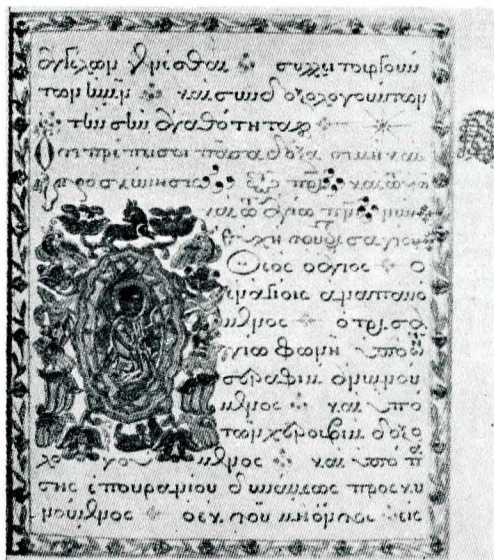 ἀγγέλων γενέσθαι συλλειτουργούν
των ἡμῖν καὶ συνδοξολογούντων
τὴν σὴν ἀγαθότητα
Ὅτι πρέπει σοι πᾶσα δόξα τιμὴ καὶ
προσκύνησις τῷ πρι καὶ τῷ
καὶ τῷ ἁγίῳ πνι νῦν
εὐχὴ τοῦ τρισαγίου
Ὁ θεὸς ὁ ἅγιος ὁ
ἐν ἁγίοις ἀναπαυό
μενος ὁ τρισα
γίῳ φωνῇ ὑπὸ τῶν
σεραφὶμ ἀνυμνού
μενος καὶ ὑπὸ
τῶν χερουβὶμ δοξο
λογούμενος καὶ ὑπὸ πά
σης ἐπουρανίου δυνάμεως προσκυ
νούμενος ὁ ἐκ τοῦ μὴ ὄντος εἰς